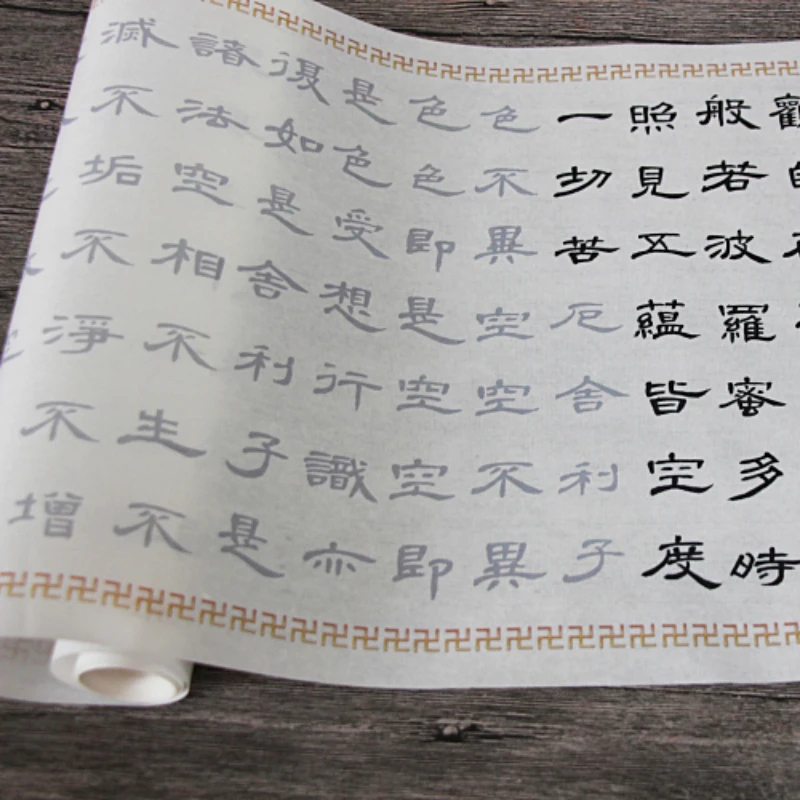 觀
般若波羅蜜多時
照見五蘊皆空度
一切苦厄舍利子
色不異空空不異
色色即是空空即
是色受想行識亦
復如是舍利子是
諸法空相不生不
滅不垢不淨不增